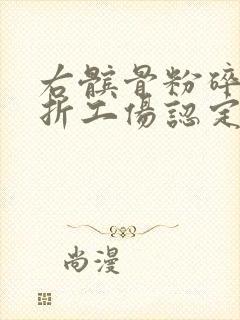 右髌骨粉碎
折工傷認定
尚漫